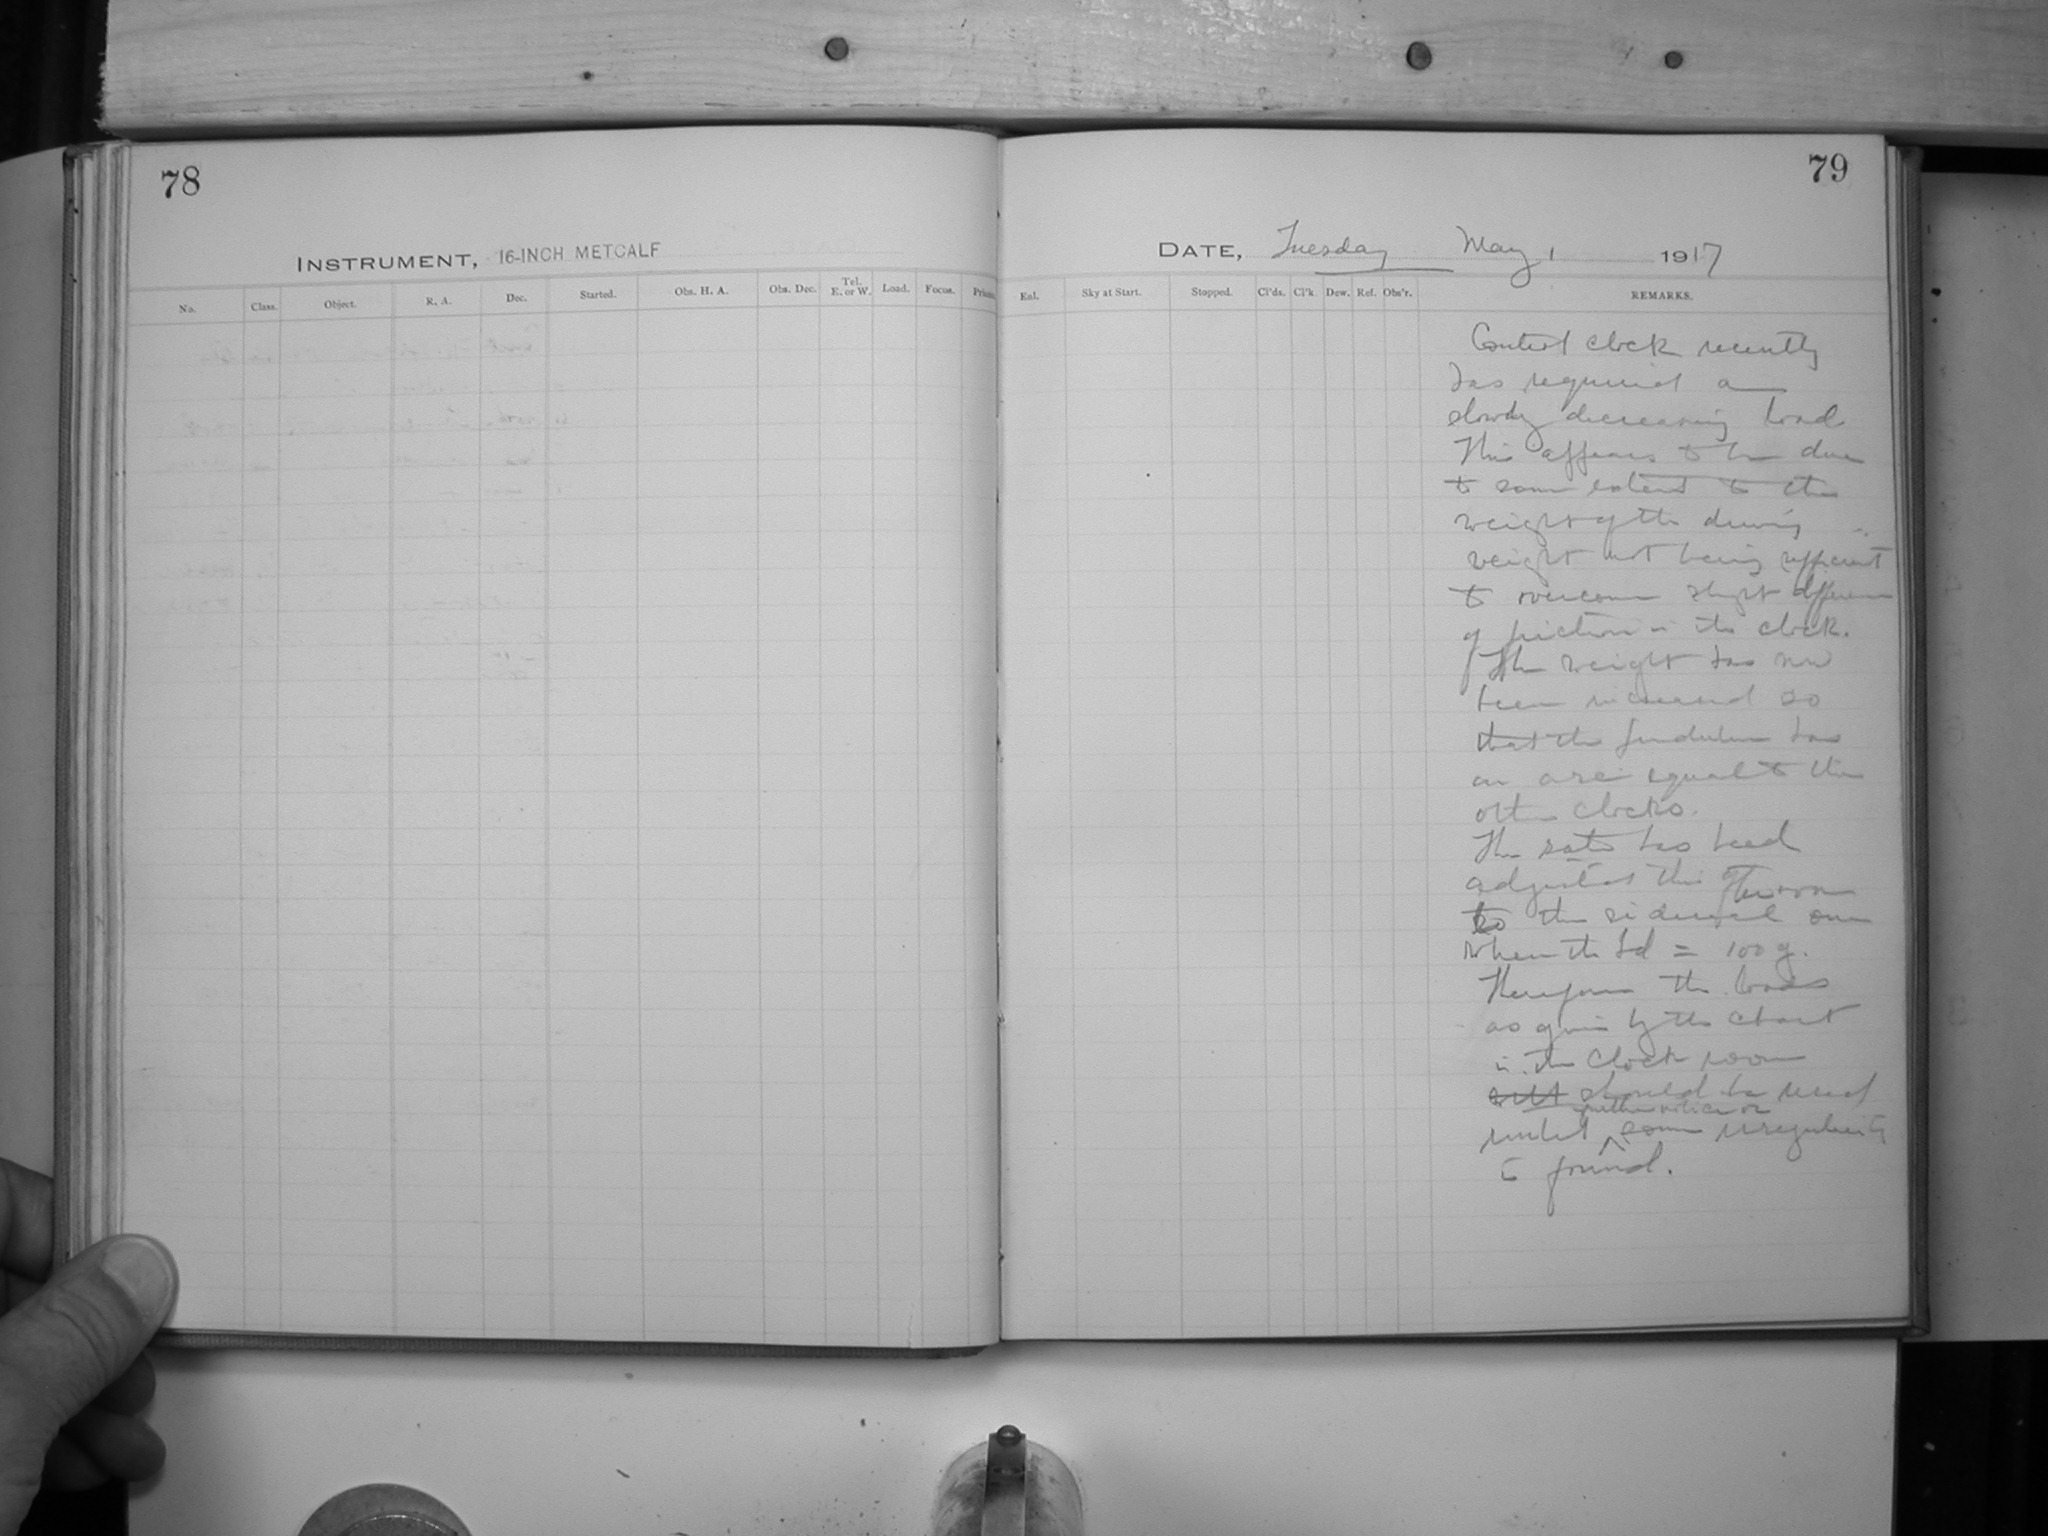 78
INSTRUMENT, 16-INCH METCALF
No. Class. Object. R. A. Dec. Started. Obs. H. A. Obs. Dec. Tel. E. or W. Load. Focus. Prisms.
79
DATE, Tuesday May 1 1917
Enl. Sky at Start. Stopped. Cl'ds. Cl'k Dew. Ref. Obs'r. REMARKS.
Control clock recently
has required a
slowly decreasing load
This appears to be due
to some extent to the
weight of the driving
weight not being sufficient
to overcome slight differences
of friction in the clock.
The weight has now
been increased so
that the pendulum has
an arc equal to the
other clocks.
The rate has been
adjusted this afternoon
to the sidereal one
when the Ld = 100 g.
Therefore the loads
as given by the chart
in the clock room
will should be used
further notice or
until some irregularity
is found.